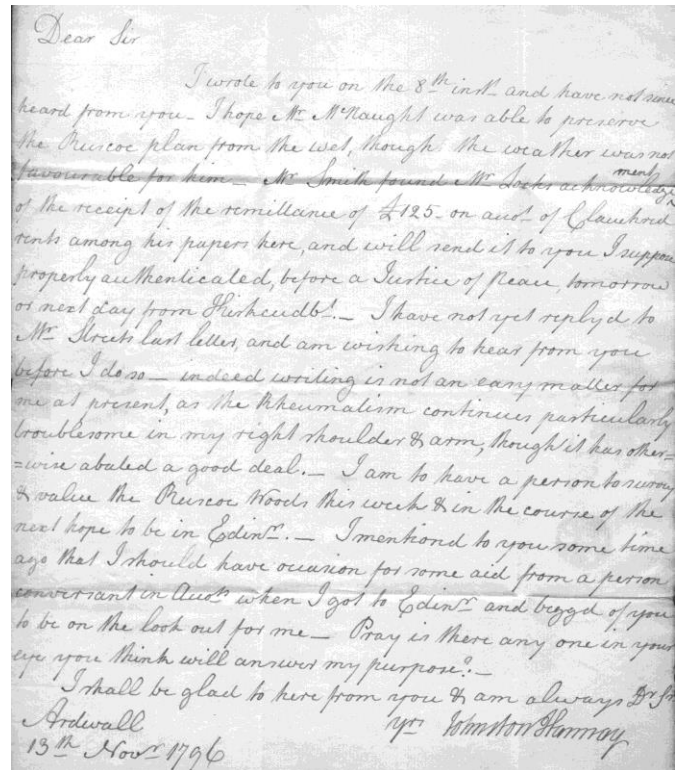 Dear Sir
I wrote to you on the 8th inst and have not since
heard from you - I hope Mr McNaught was able to preserve
the Ruscoe plan from the wet, though the weather was not
favourable for him - Mr Smith found Mr Locks acknowledgement
of the receipt of the remittance of £125 - on accot. of Clauchred
rents among his papers here, and will send it to you I suppose
properly authenticated, before a Justice of Peace, tomorrow
or next day from Kirkcudbt. - I have not yet replyd to
Mr Streets last letter, and am wishing to hear from you
before I do so - indeed writing is not an easy matter for
me at present, as the Rheumatism continues particularly
troublesome in my right shoulder & arm, though it has other=
=wise abated a good deal. - I am to have a person to survey
& value the Ruscoe Woods this week & in the course of the
next hope to be in Edinr. - I mentiond to you some time
ago that I should have occasion for some aid from a person
conversant in Accots when I got to Edinr and beggd of you
to be on the look out for me - Pray is there any one in your
eye you think will answer my purpose? -
I shall be glad to here from you & am always Dr Sir
yrs Johnston Hannay
Ardwall
13th Novr 1796